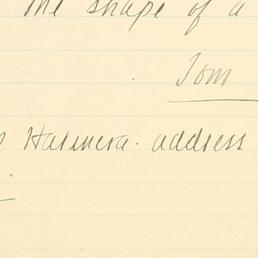 the shape of a
Tom
address